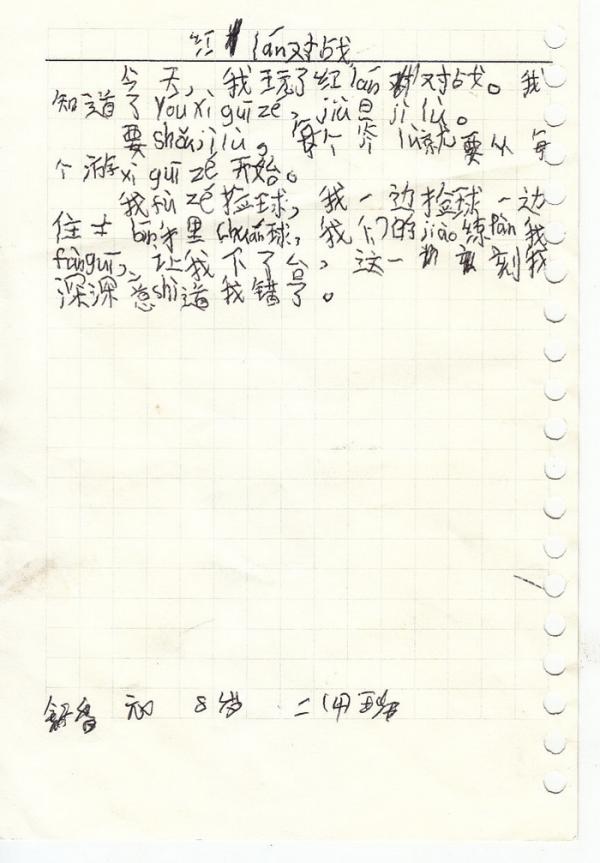 红lán对战
今天，我玩了红lán对战。我
知道了youxì guīzé，jiù是jì lǜ。
要shǒujìlǜ。每个 lǜ就要从每
个游xì guīzé开始。
我fùzé捡球，我一边捡球一边
往 里chuán球，我们的jiào练pàn我
fànguī，让我下了台。这一刻我
深深意shì道我错了。
8岁 二(4)班